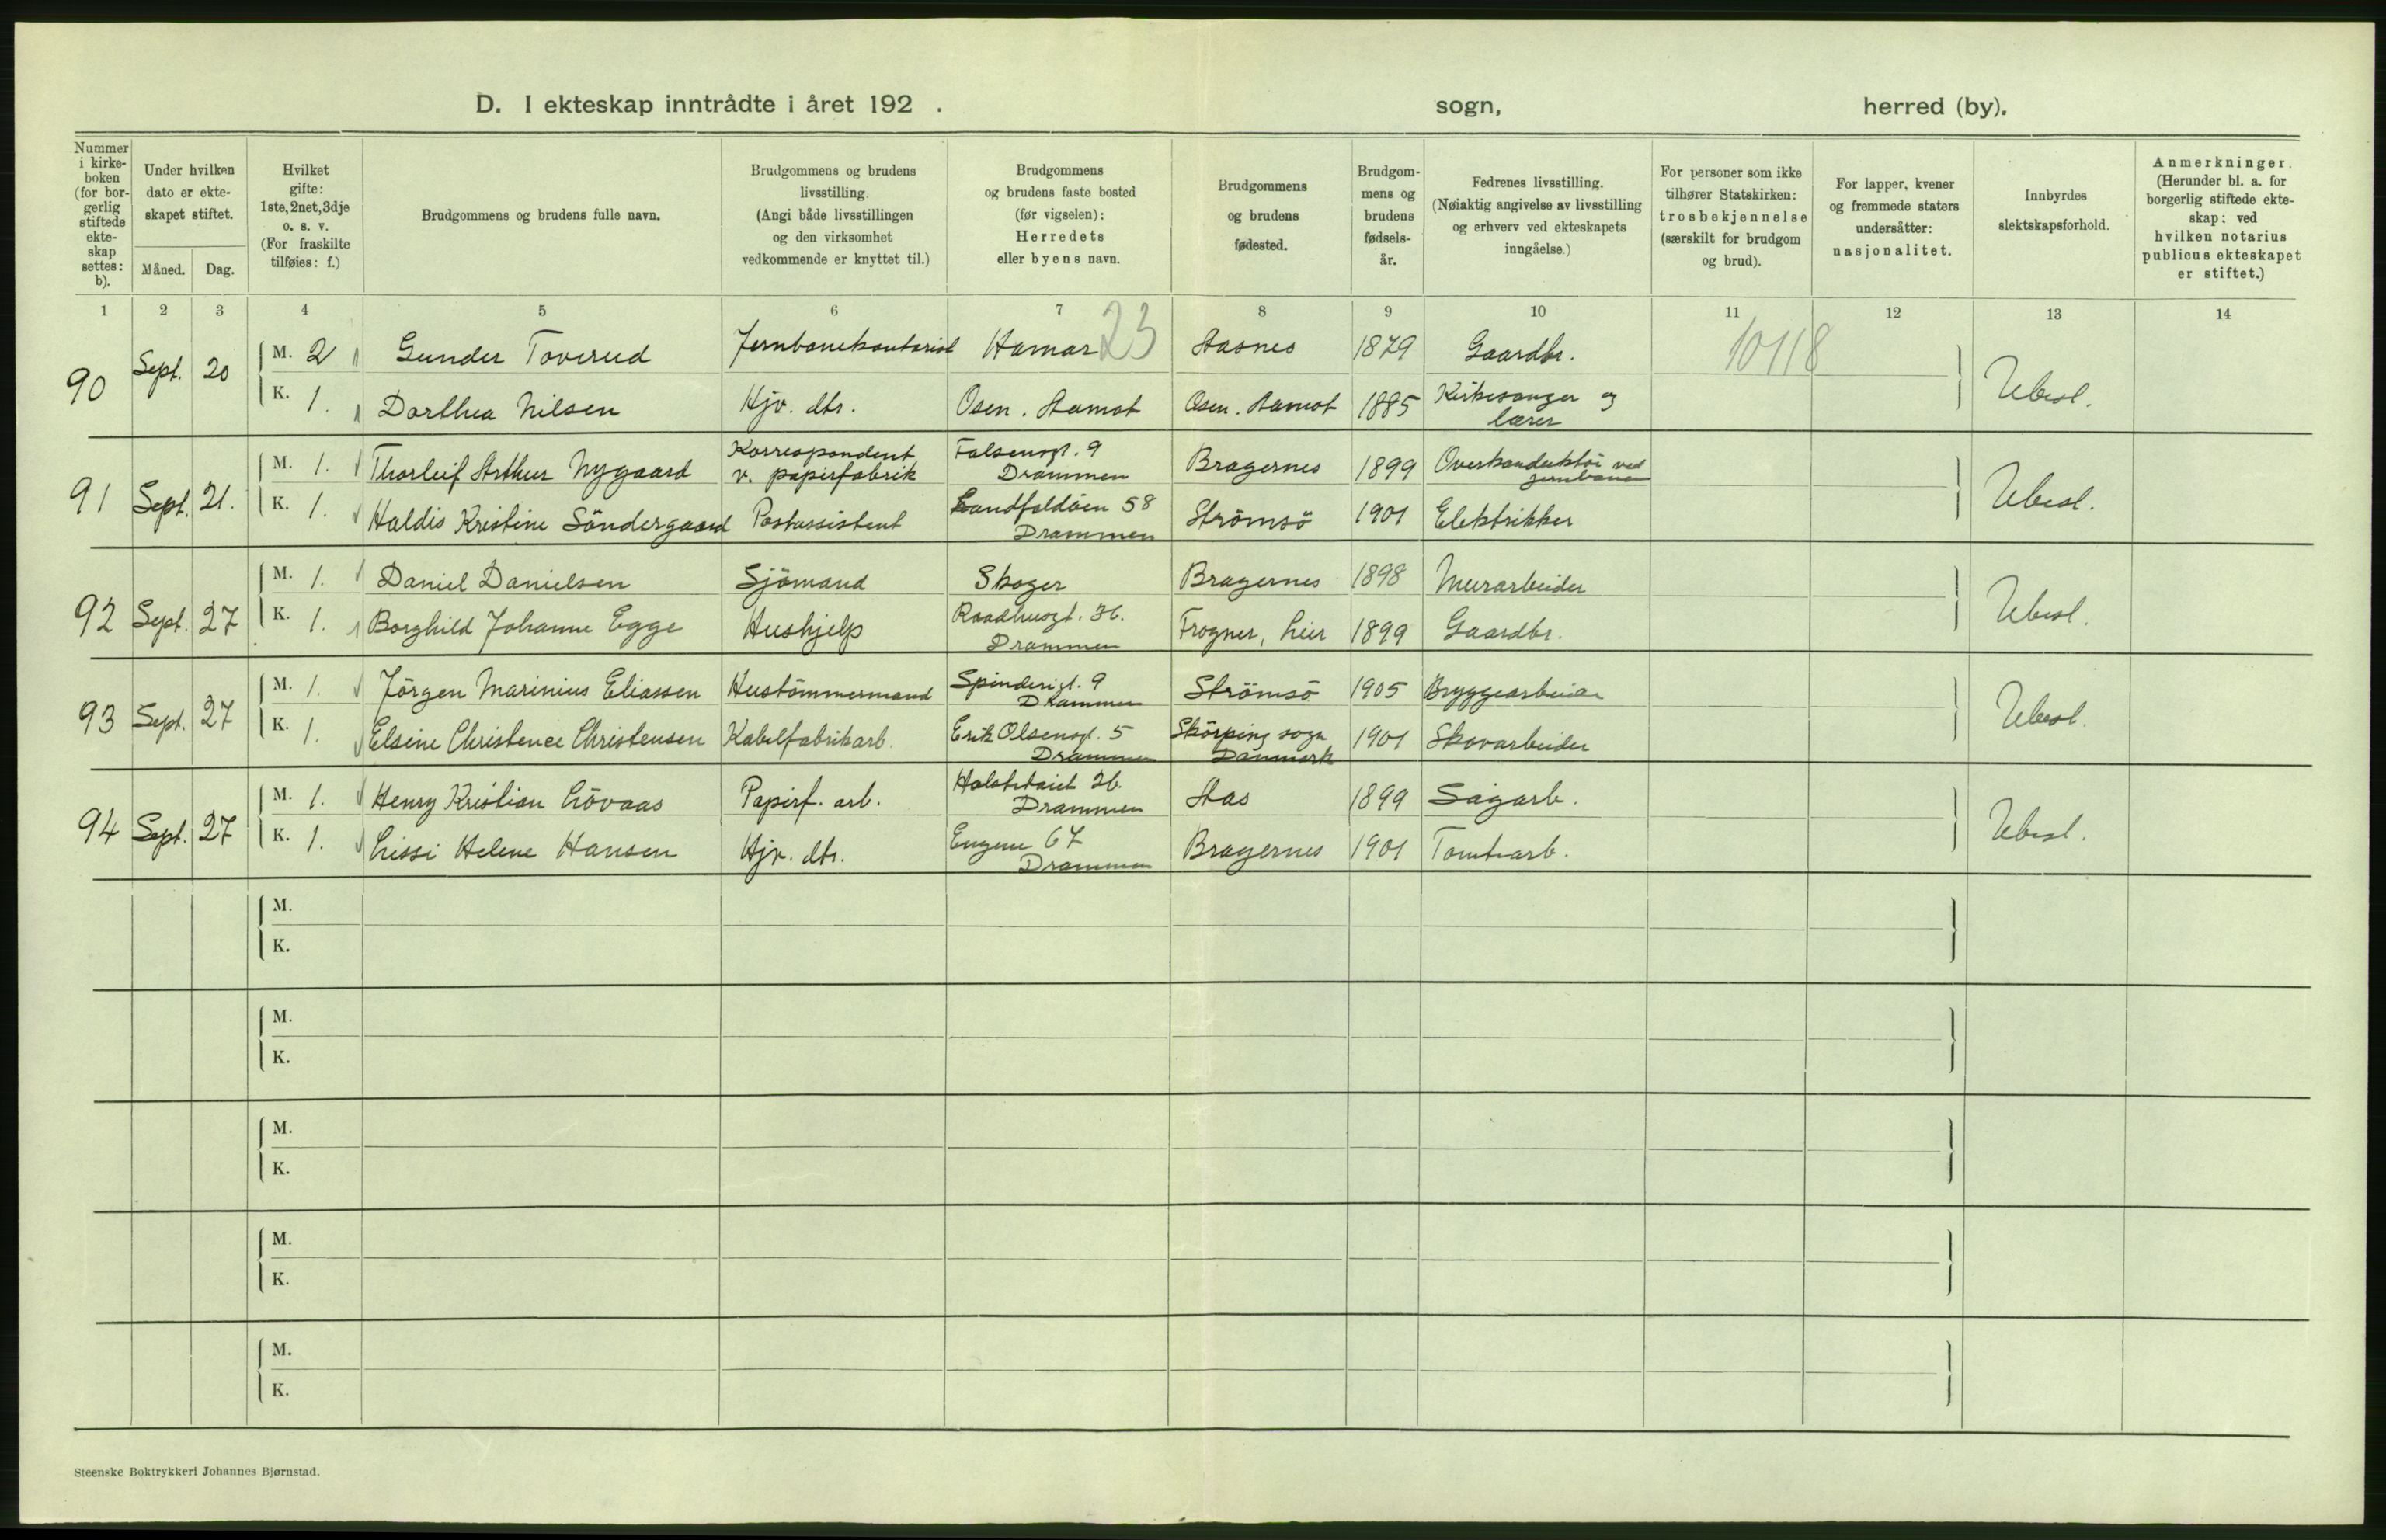 D. I ekteskap inntrådte i året 192 . sogn, herred (by).
Nummer i kirkeboken (for borgerlig stiftede ekteskap settes: b).
Under hvilken dato er ekteskapet stiftet.
Måned. Dag.
Hvilket gifte: 1ste, 2net, 3dje o. s. v. (For fraskilte tilføies: f.)
Brudgommens og brudens fulle navn.
Brudgommens og brudens livsstilling. (Angi både livsstillingen og den virksomhet vedkommende er knyttet til.)
Brudgommens og brudens faste bosted (før vigselen): Herredets eller byens navn.
Brudgommens og brudens fødested.
Brudgommens og brudens fødselsår.
Fedrenes livsstilling. (Nøiaktig angivelse av livsstilling og erhverv ved ekteskapets inngåelse.)
For personer som ikke tilhører Statskirken: trosbekjennelse (særskilt for brudgom og brud).
For lapper, kvener og fremmede staters undersåtter: nasjonalitet.
Innbyrdes slektskapsforhold.
Anmerkninger. (Herunder bl. a. for borgerlig stiftede ekteskap: ved hvilken notarius publicus ekteskapet er stiftet.)
1 2 3 4 5 6 7 8 9 10 11 12 13 14
23 10118
90 Sept. 20 M. 2 Gunder Toverud Jernbanekontorist Hamar Aasnes 1879 Gaardbr. Ubesl.
K. 1. Dorthea Nilsen Hjv. dtr. Osen. Aamot Osen. Aamot 1885 Kirkesanger og lærer
91 Sept. 21. M. 1. Thorleif Arthur Nygaard Korrespondent v. papirfabrik Falsensgt. 9 Drammen Bragernes 1899 Overkonduktör ved jernbanen Ubesl.
K. 1. Haldis Kristine Söndergaard Postassistent Landfaldöen 58 Drammen Strömsö 1901 Elektrikker
92 Sept. 27 M. 1. Daniel Danielsen Sjömand Skoger Bragernes 1898 Murarbeider Ubesl.
K. 1. Borghild Johanne Egge Hushjelp Raadhusgt. 36. Drammen Frogner, Lier 1899 Gaardbr.
93 Sept. 27 M. 1. Jörgen Marinius Eliassen Hustömmermand Spinderigt. 9 Drammen Strömsö 1905 Bryggearbeider Ubesl.
K. 1. Elsine Christence Christensen Kabelfabrikarb. Erik Olsensgt. 5 Drammen Skörping sogn Danmark 1901 Skovarbeider
94 Sept. 27 M. 1. Henry Kristian Lövaas Papirf. arb. 26. Drammen Aas 1899 Sagarb. Ubesl.
K. 1. Lissi Helene Hansen Hjv. dtr. Engene 67 Drammen Bragernes 1901 Tomtearb.
M.
K.
M.
K.
M.
K.
M.
K.
M.
K.
Steenske Boktrykkeri Johannes Bjørnstad.